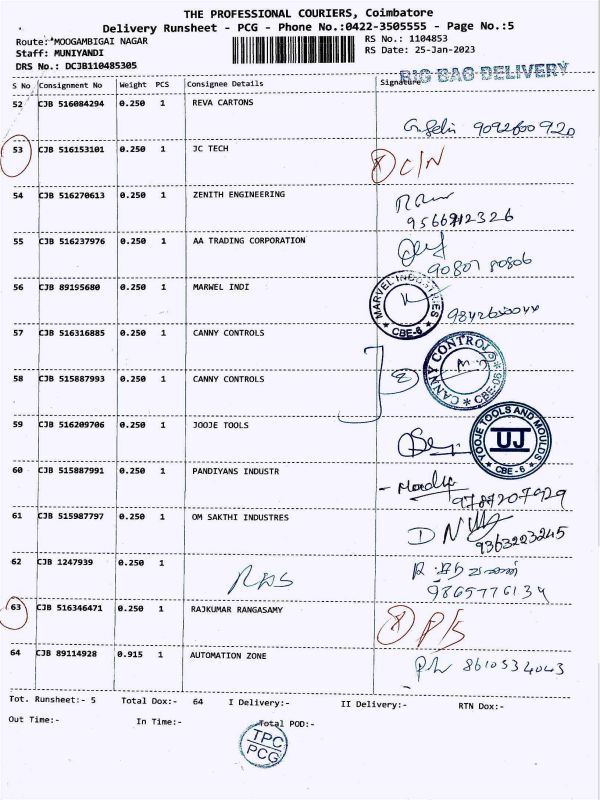 THE PROFESSIONAL COURIERS, Coimbatore
Delivery Runsheet - PCG - Phone No.:0422-3505555 - Page No.:5
Route:*MOOGAMBIGAI NAGAR RS No.: 1104853
Staff: MUNIYANDI RS Date: 25-Jan-2023
DRS No.: DCJB110485305
BIG BAG DELIVERY
S No Consignment No Weight PCS Consignee Details Signature
52 CJB 516084294 0.250 1 REVA CARTONS
9092600920
53 CJB 516153101 0.250 1 JC TECH
C/N
54 CJB 516270613 0.250 1 ZENITH ENGINEERING
9566912326
55 CJB 516237976 0.250 1 AA TRADING CORPORATION
90807 80806
56 CJB 89195680 0.250 1 MARWEL INDI
MARVEL INDUSTRIES
CBE-6
57 CJB 516316885 0.250 1 CANNY CONTROLS
CANNY CONTROLS
CBE-06
58 CJB 515887993 0.250 1 CANNY CONTROLS
2
59 CJB 516209706 0.250 1 JOOJE TOOLS
YOOJE TOOLS AND MOULDS
UJ
CBE-6
60 CJB 515887991 0.250 1 PANDIYANS INDUSTR
9789207929
61 CJB 515987797 0.250 1 OM SAKTHI INDUSTRIES
9363223245
62 CJB 1247939 0.250 1
9865776134
63 CJB 516346471 0.250 1 RAJKUMAR RANGASAMY
P/S
64 CJB 89114928 0.915 1 AUTOMATION ZONE
8610534043
Tot. Runsheet:- 5 Total Dox:- 64 I Delivery:- II Delivery:- RTN Dox:-
Out Time:- In Time:- Total POD:-
TPC
PCG